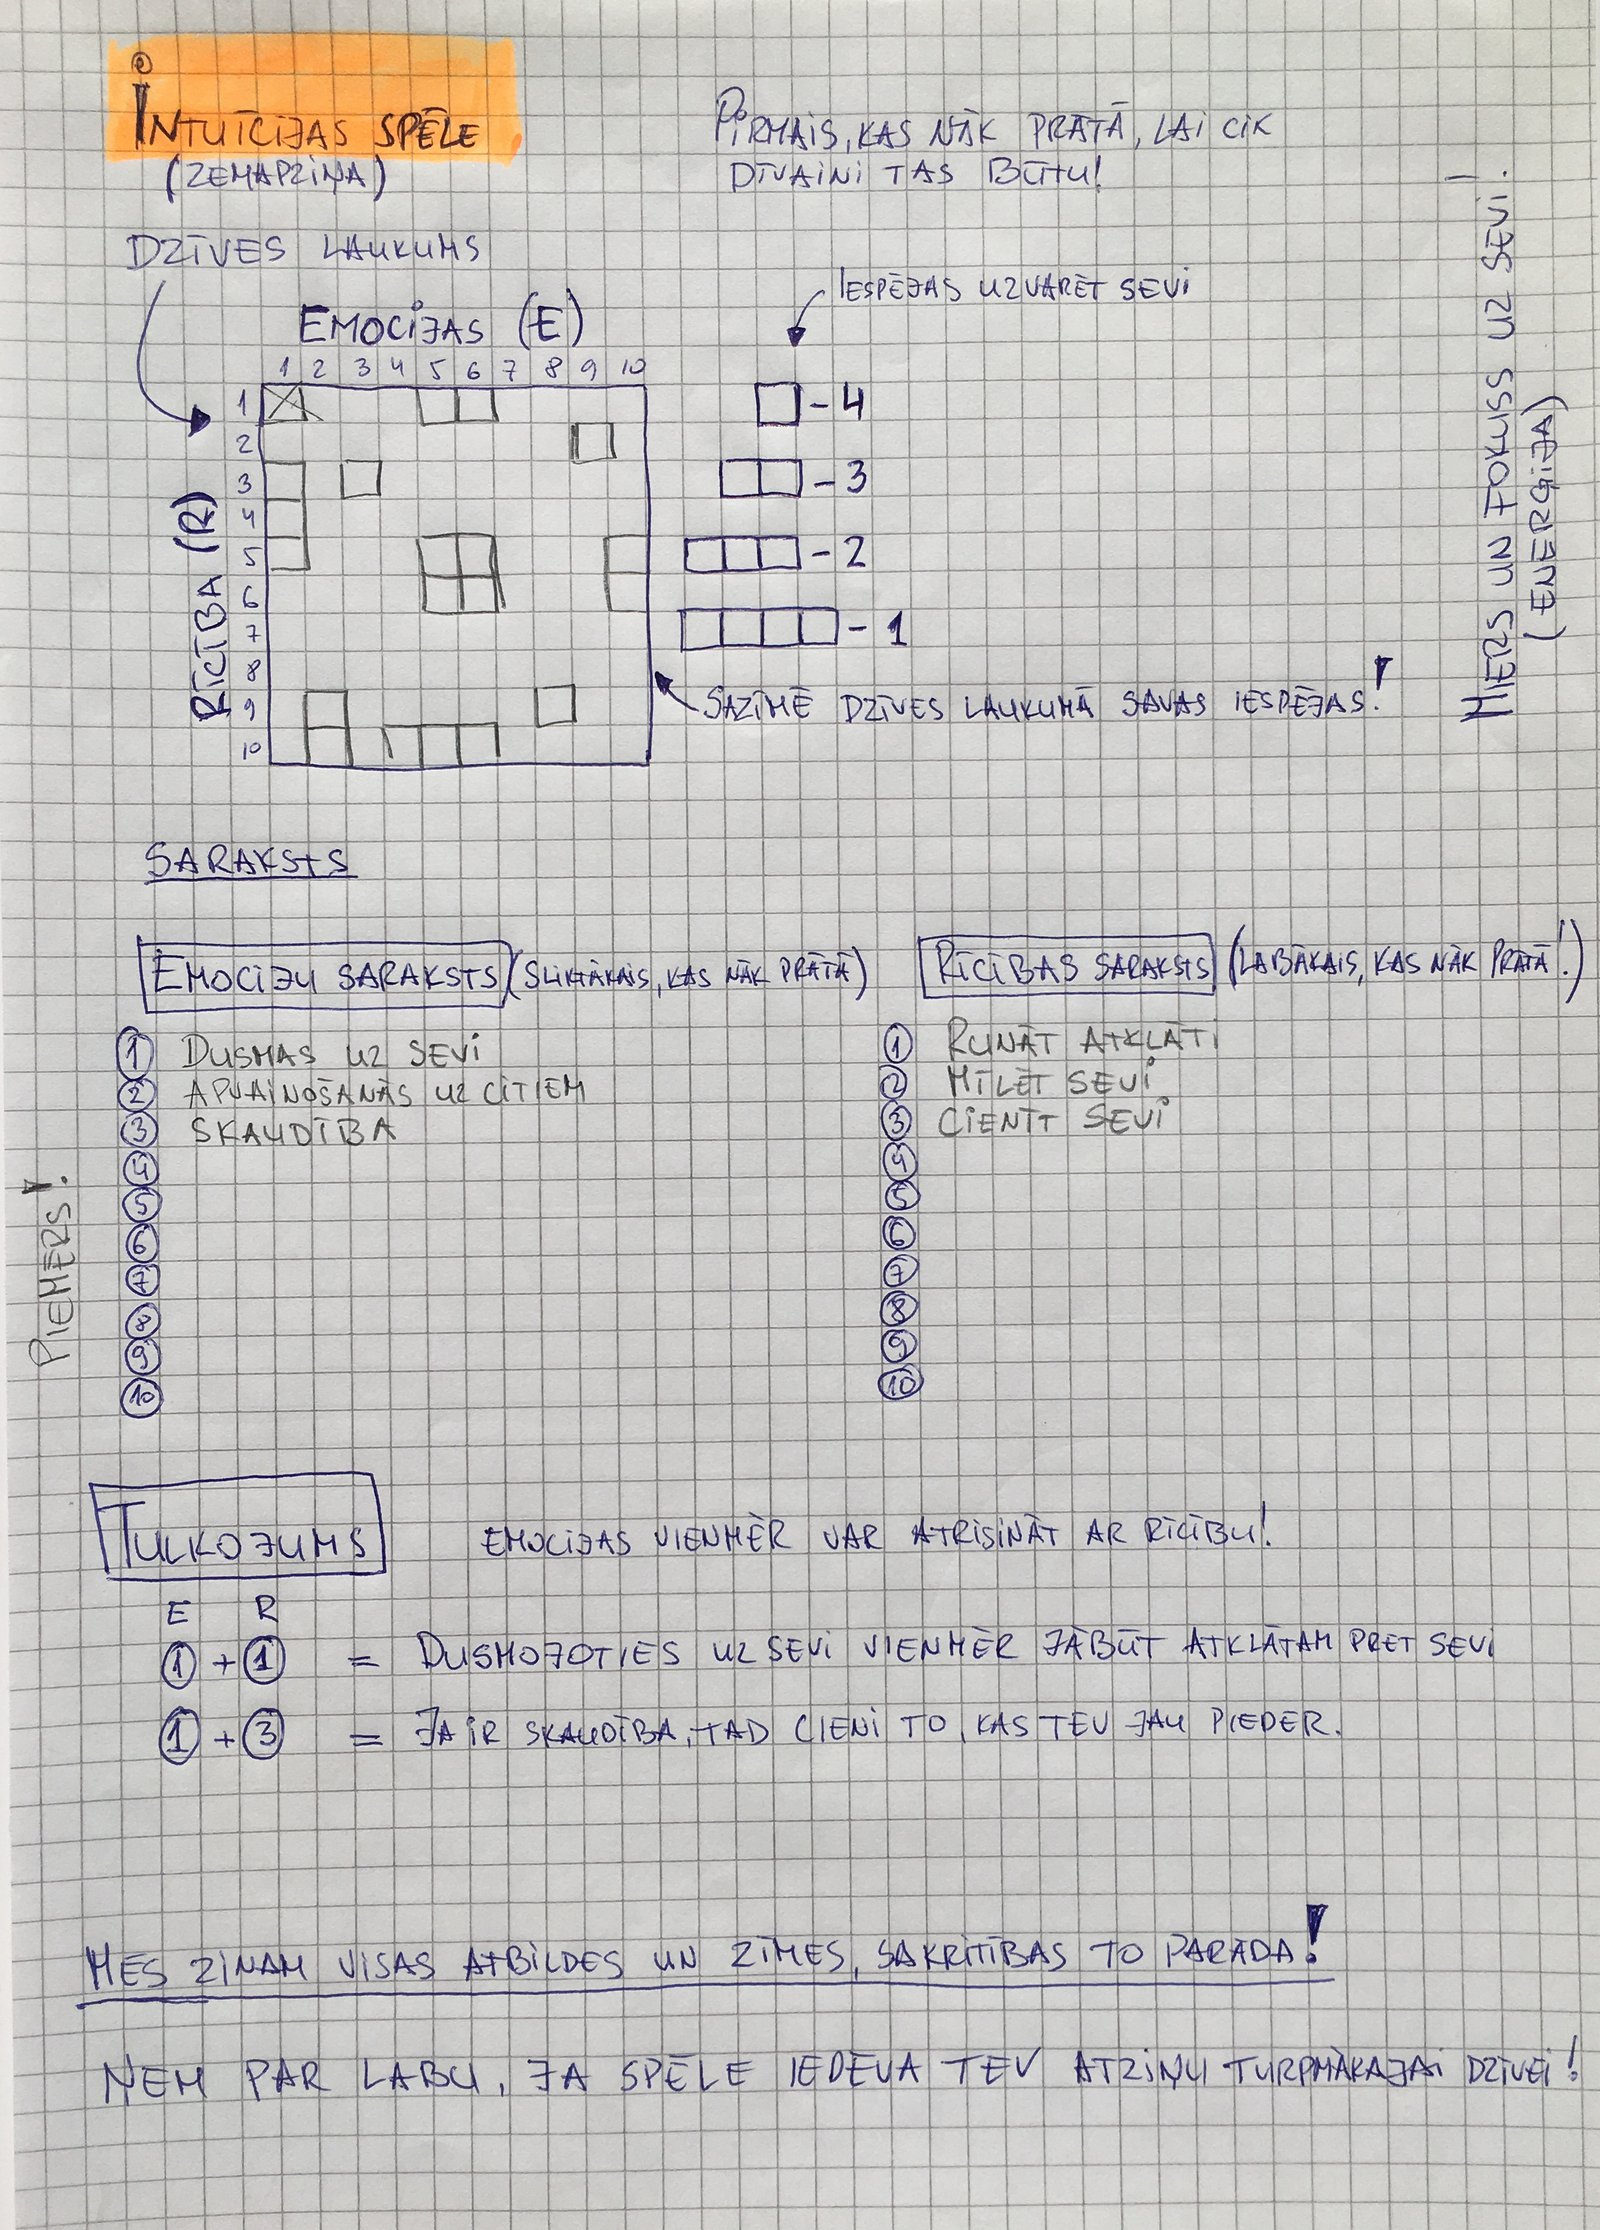 INTUĪCIJAS SPĒLE
(ZEMAPZIŅA)
PIRMAIS, KAS NĀK PRĀTĀ, LAI CIK
DĪVAINI TAS BŪTU!
DZĪVES LAUKUMS
IESPĒJAS UZVARĒT SEVI
EMOCIJAS (E)
1 2 3 4 5 6 7 8 9 10
RĪCĪBA (R)
1
2
3
4
5
6
7
8
9
10
- 4
- 3
- 2
- 1
SAZĪMĒ DZĪVES LAUKUMĀ SAVAS IESPĒJAS!
MIERS UN FOKUSS UZ SEVI!
(ENERĢIJA)
SARAKSTS
EMOCIJU SARAKSTS (SLIKTĀKAIS, KAS NĀK PRĀTĀ)
1 DUSMAS UZ SEVI
2 APVAINOŠANĀS UZ CITIEM
3 SKAUDĪBA
4
5
6
7
8
9
10
RĪCĪBAS SARAKSTS (LABĀKAIS, KAS NĀK PRĀTĀ!)
1 RUNĀT ATKLĀTI
2 MĪLĒT SEVI
3 CIENĪT SEVI
4
5
6
7
8
9
10
PIEMĒRS!
TULKOJUMS
EMOCIJAS VIENMĒR VAR ATRISINĀT AR RĪCĪBU!
E R
1 + 1 = DUSMOJOTIES UZ SEVI VIENMĒR JĀBŪT ATKLĀTAM PRET SEVI
1 + 3 = JA IR SKAUDĪBA, TAD CIENI TO, KAS TEV JAU PIEDER.
MĒS ZINAM VISAS ATBILDES UN ZĪMES, SAKRITĪBAS TO PARĀDA!
ŅEM PAR LABU, JA SPĒLE IEDEVA TEV ATZIŅU TURPMĀKAJAI DZĪVEI!